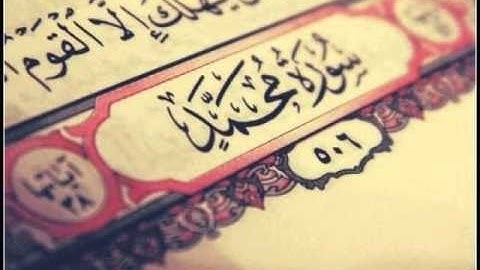 يُهْلَكُ إِلَّا ٱلْقَوْمُ
سُورَةُ مُحَمَّدٍ
آياتها
٣٨
٥٠٦